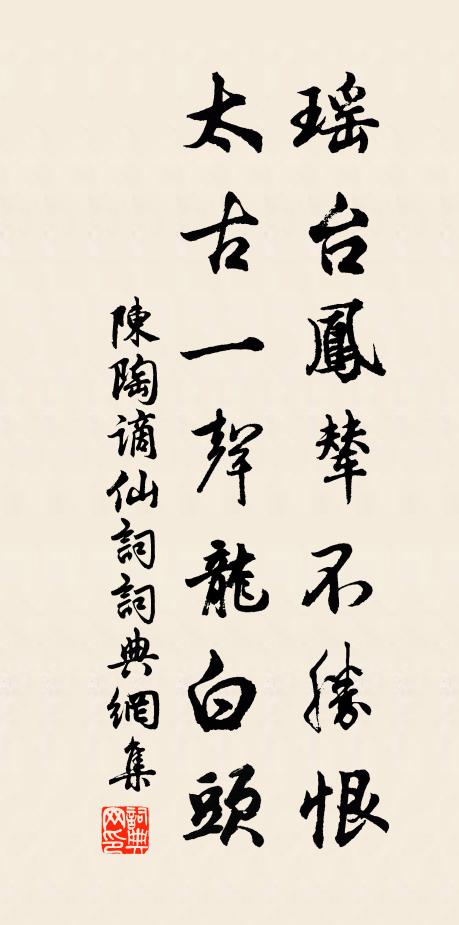 瑶台鳳輦不勝恨
太古一聲龍白頭
陳陶謫仙詞詞典網集
詞典網印